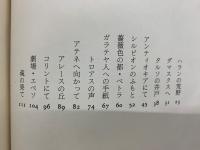 ハランの荒野 15
ダマスクスへ 31
タルソの井戸 38
アンティオキアにて 45
シルピオンのふもと 52
薔薇色の都・ペトラ 60
ガラテヤ人への手紙 67
トロアスの声 74
アテネへ向かって 82
アレースの丘 89
コリントにて 96
劇場・エペソ 104
嵐の果て 111